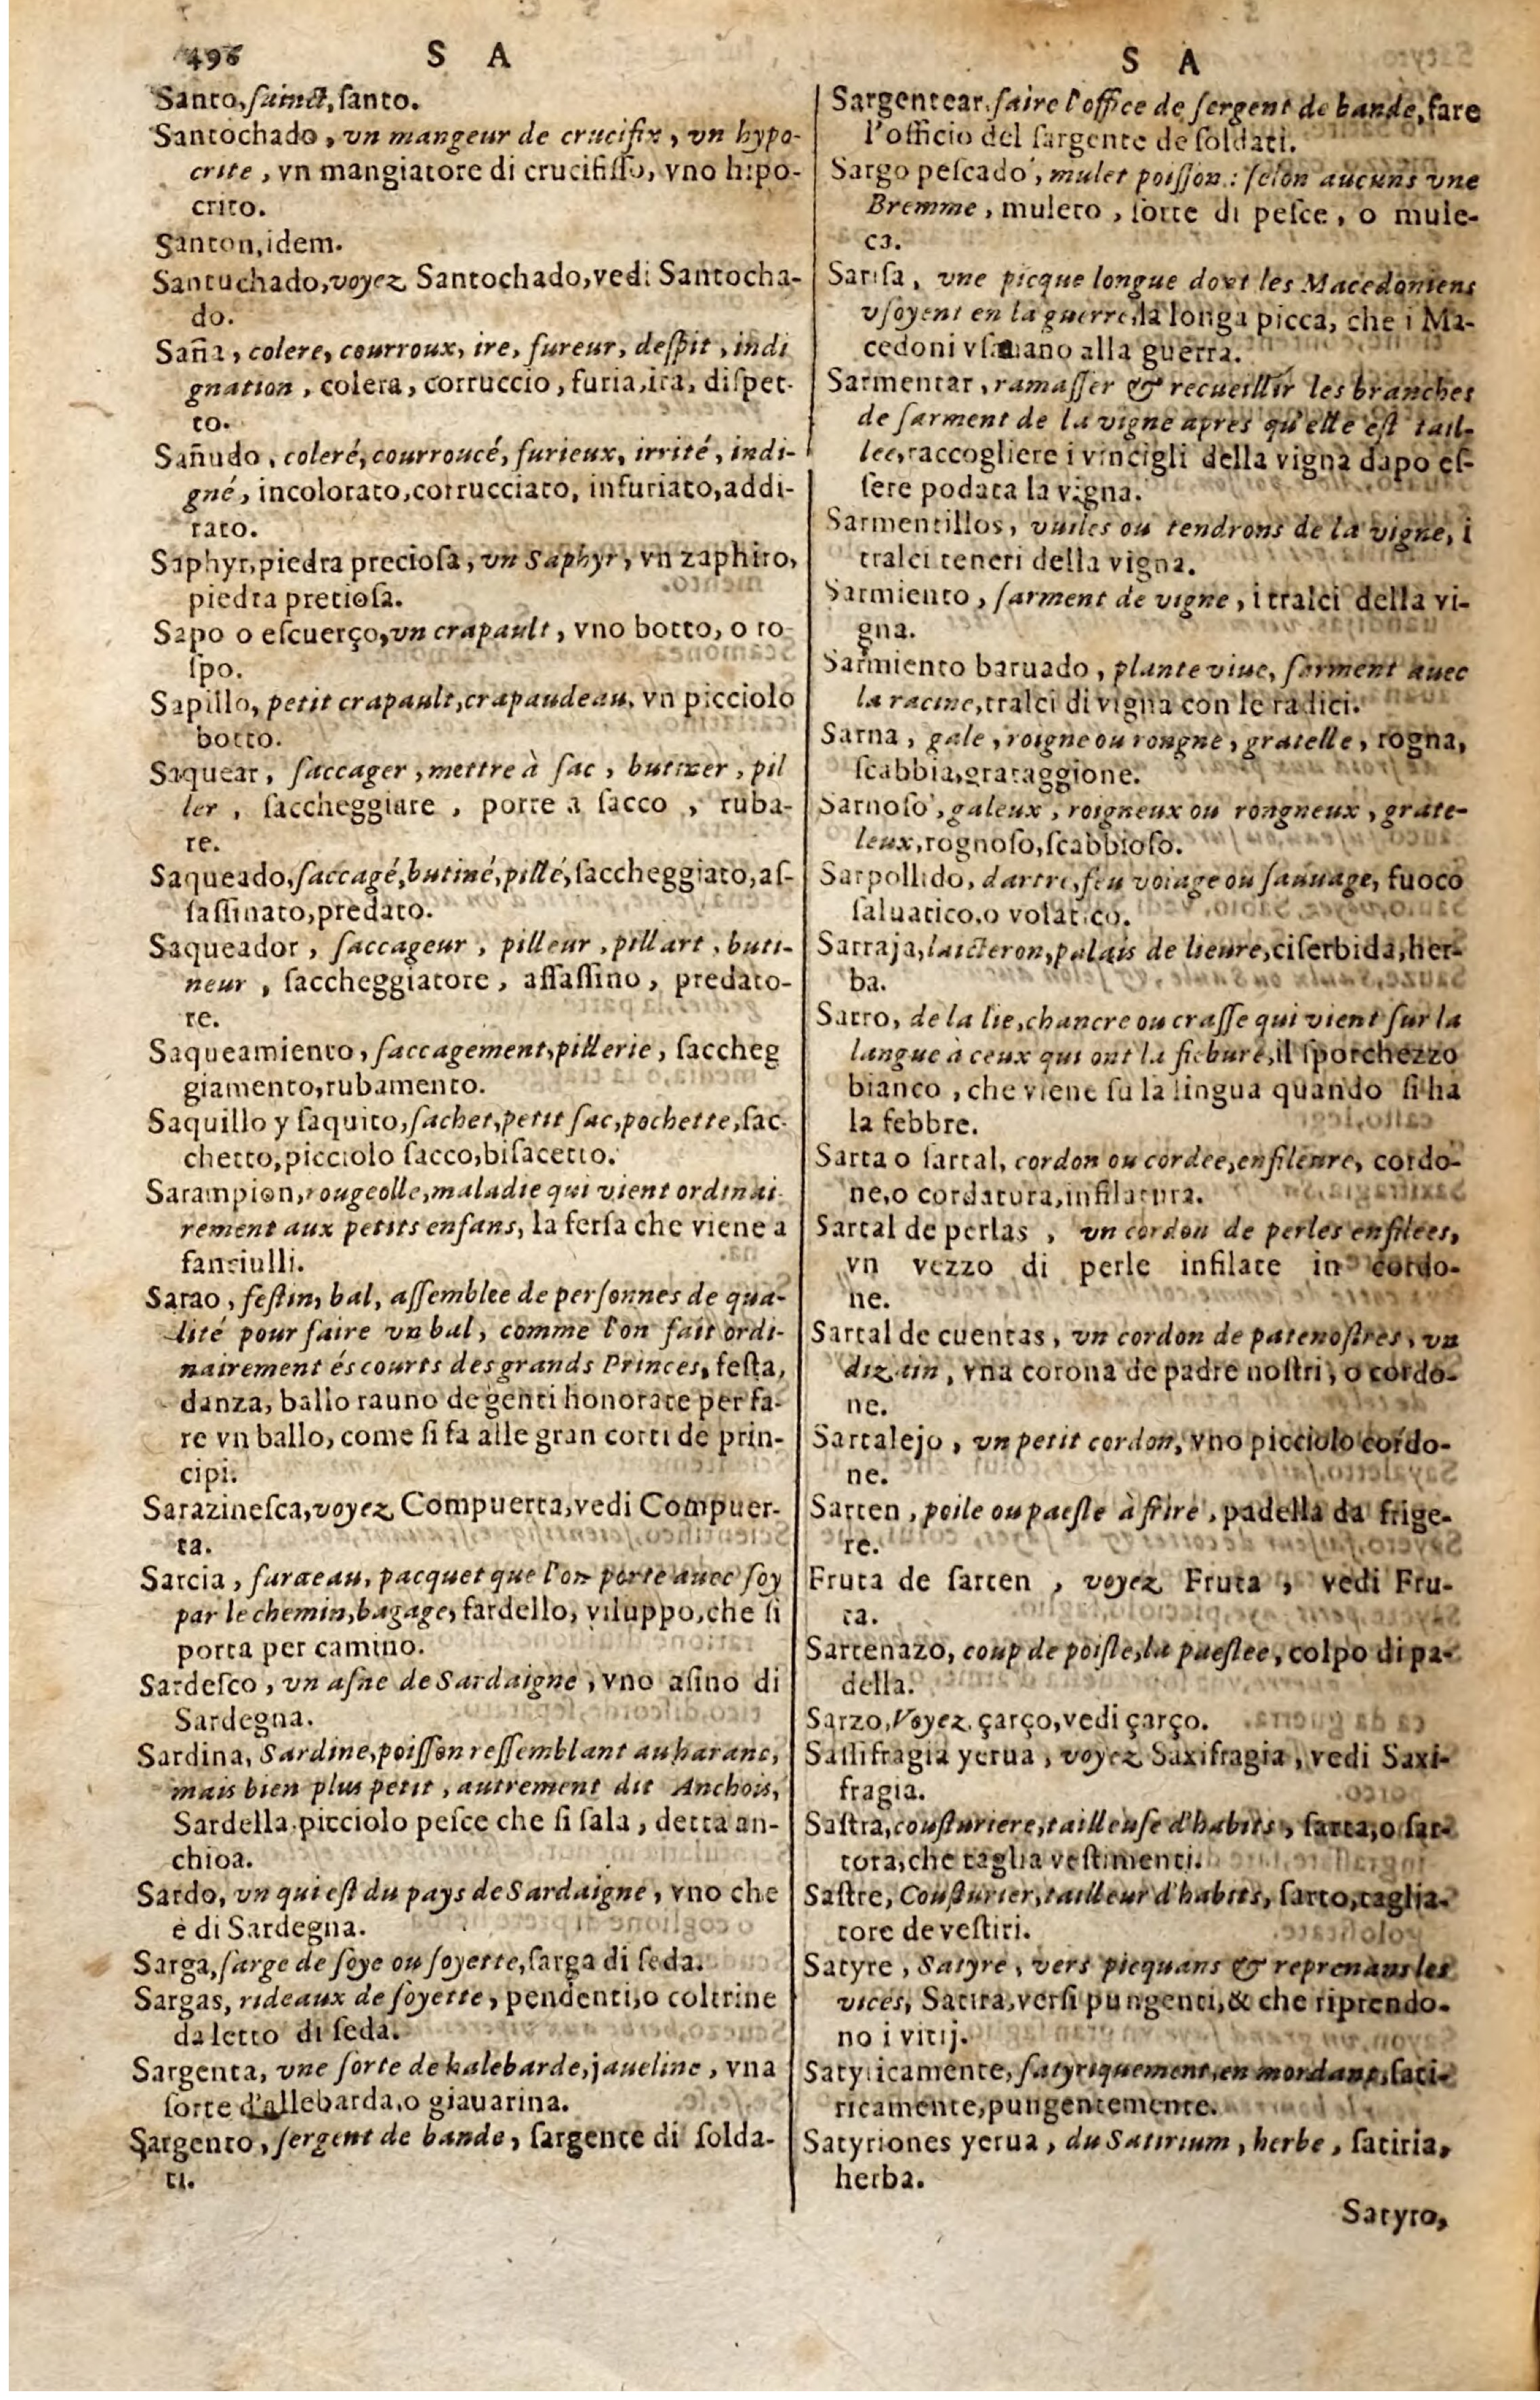 496 S A
Santo, ſainct, ſanto.
Santochado, vn mangeur de crucifix, vn hypo-
crite, vn mangiatore di crucifiſſo, vno hipo-
crito.
Santon, idem.
Santuchado, voyez Santochado, vedi Santocha-
do.
Saña, colere, courroux, ire, fureur, deſpit, indi
gnation, colera, corruccio, furia, ira, diſpet-
to.
Sañudo, coleré, courroucé, furieux, irrité, indi-
gné, incolorato, corrucciato, infuriato, addi-
rato.
Saphyr, piedra precioſa, vn Saphyr, vn zaphiro,
piedra pretioſa.
Sapo o eſcuerço, vn crapault, vno botto, o ro
ſpo.
Sapillo, petit crapault, crapaudeau, vn picciolo
botto.
Saquear, ſaccager, mettre à ſac, butiner, pil
ler, ſaccheggiare, porre a ſacco, ruba-
re.
Saqueado, ſaccagé, butiné, pillé, ſaccheggiato, aſ-
ſaſſinato, predato.
Saqueador, ſaccageur, pilleur, pillart, buti-
neur, ſaccheggiatore, aſſaſſino, predato-
re.
Saqueamiento, ſaccagement, pillerie, ſaccheg
giamento, rubamento.
Saquillo y ſaquito, ſachet, petit ſac, pochette, ſac-
chetto, picciolo ſacco, biſacetto.
Sarampion, rougeolle, maladie qui vient ordinai-
rement aux petits enfans, la ferſa che viene a
fanciulli.
Sarao, feſtin, bal, aſſemblee de perſonnes de qua-
lité pour faire vn bal, comme l'on fait ordi-
nairement és courts des grands Princes, feſta,
danza, ballo rauno de genti honorate per fa-
re vn ballo, come ſi fa alle gran corti de prin-
cipi.
Sarazineſca, voyez Compuerta, vedi Compuer-
ta.
Sarcia, fardeau, pacquet que l'on porte auec ſoy
par le chemin, bagage, fardello, viluppo, che ſi
porta per camino.
Sardeſco, vn aſne de Sardaigne, vno aſino di
Sardegna.
Sardina, Sardine, poiſſon reſſemblant au haranc,
mais bien plus petit, autrement dit Anchois,
Sardella, picciolo peſce che ſi ſala, detta an-
chioa.
Sardo, vn qui eſt du pays de Sardaigne, vno che
è di Sardegna.
Sarga, ſarge de ſoye ou ſoyette, ſarga di ſeda.
Sargas, rideaux de ſoyette, pendenti, o coltrine
da letto di ſeda.
Sargenta, vne ſorte de halebarde, jaueline, vna
ſorte d'allebarda, o giauarina.
Sargento, ſergent de bande, ſargente di ſolda-
ti.
S A
Sargentear, faire l'office de ſergent de bande, fare
l'officio del ſargente de ſoldati.
Sargo peſcado, mulet poiſſon: ſelon aucuns vne
Bremme, muleto, ſorte di peſce, o mule-
ca.
Sariſa, vne picque longue dont les Macedoniens
vſoyent en la guerre, la longa picca, che i Ma-
cedoni vſauano alla guerra.
Sarmentar, ramaſſer & recueillir les branches
de ſarment de la vigne apres qu'elle eſt tail-
lee, raccogliere i vincigli della vigna dapo eſ-
ſere podata la vigna.
Sarmentillos, vuiles ou tendrons de la vigne, i
tralci teneri della vigna.
Sarmiento, ſarment de vigne, i tralci della vi-
gna.
Sarmiento baruado, plante viue, ſarment auec
la racine, tralci di vigna con le radici.
Sarna, gale, roigne ou rongne, gratelle, rogna,
ſcabbia, grataggione.
Sarnoſo, galeux, roigneux ou rongneux, grate-
leux, rognoſo, ſcabbioſo.
Sarpollido, dartre, feu volage ou ſauuage, fuoco
ſaluatico, o volatico.
Sarraja, laicteron, palais de lieure, ciſerbida, her-
ba.
Sarro, de la lie, chancre ou craſſe qui vient ſur la
langue à ceux qui ont la fiebure, il ſporchezzo
bianco, che viene ſu la lingua quando ſi ha
la febbre.
Sarta o ſartal, cordon ou cordee, enfileure, cordo-
ne, o cordatura, infilatura.
Sartal de perlas, vn cordon de perles enfilees,
vn vezzo di perle infilate in cordo-
ne.
Sartal de cuentas, vn cordon de patenoſtres, vn
dizain, vna corona de padre noſtri, o cordo-
ne.
Sartalejo, vn petit cordon, vno picciolo cordo-
ne.
Sarten, poile ou paeſle à frire, padella da frige-
re.
Fruta de ſarten, voyez Fruta, vedi Fru-
ta.
Sartenazo, coup de poiſle, la paeſlee, colpo di pa-
della.
Sarzo, Voyez çarço, vedi çarço.
Saſſifragia yerua, voyez Saxifragia, vedi Saxi-
fragia.
Saſtra, couſturiere, tailleuſe d'habits, ſarta, o ſar-
tora, che taglia veſtimenti.
Saſtre, Couſturier, tailleur d'habits, ſarto, taglia-
tore de veſtiri.
Satyre, Satyre, vers picquans & reprenans les
vices, Satira, verſi pungenti, & che riprendo-
no i vitij.
Satyricamente, ſatyriquement, en mordant, ſati-
ricamente, pungentemente.
Satyriones yerua, du Satirium, herbe, ſatiria,
herba.
Satyro,